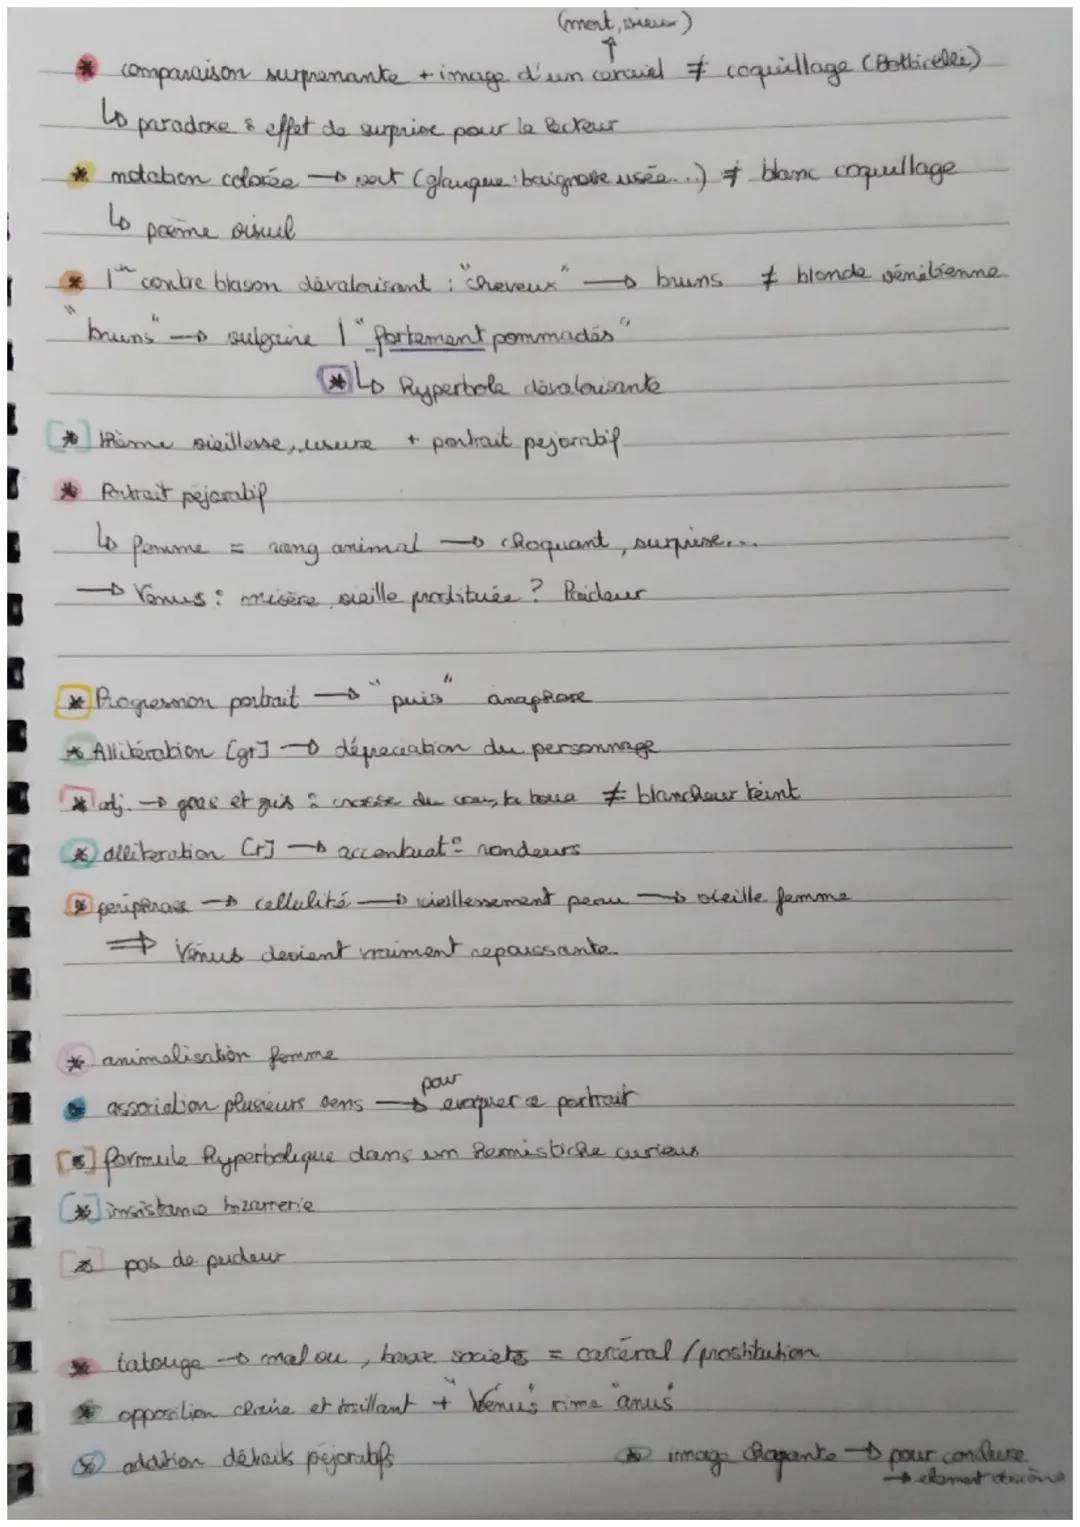 (mort, vieux)
* comparaison surprenante + image d'un cercueil ≠ coquillage (Botticelli)
↳ paradoxe & effet de surprise pour le lecteur
* notation colorée → vert (glauque : baignoire usée...) ≠ blanc coquillage
↳ poème visuel
* 1er contre blason dévalorisant : "cheveux" → bruns ≠ blonde vénétienne
"bruns" → vulgaire | "fortement pommadés"
* ↳ Hyperbole dévalorisante
* thème vieillesse, usure + portrait pejoratif
* Portrait péjoratif
↳ femme = rang animal → choquant, surprise...
→ Vénus : misère, vieille prostituée ? Laideur
* Progression portrait → "puis" anaphore
* Allitération [gr] → dépreciation du personnage
* adj. → gras et gris : crasse du cou, la boue ≠ blancheur teint
* alliteration [r] → accentuat° rondeurs
* periphrase → cellulité → vieillessement peau → vieille femme
⇒ Vénus devient vraiment repoussante.
* animalisation femme
pour
* association plusieurs sens → evoquer ce portrait
* formule hyperbolique dans un hemistiche curieux
* insistance bizarrerie
* pas de pudeur
* tatouge → mal vu, basse societé = carcéral / prostitution
* opposition claire et brillant + "Vénus" rime "anus"
* addition détails péjoratifs
* image choquante → pour conclure
→ element